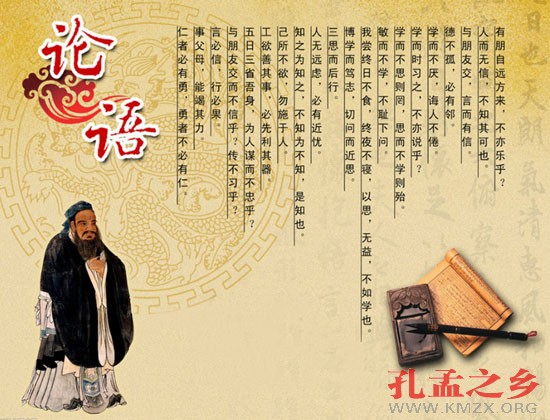 论语
有朋自远方来，不亦乐乎？
人而无信，不知其可也。
与朋友交，言而有信。
德不孤，必有邻。
学而不厌，诲人不倦。
学而时习之，不亦说乎？
学而不思则罔，思而不学则殆。
敏而不学，不耻下问。
我尝终日不食，终夜不寝，以思，无益，不如学也。
博学而笃志，切问而近思。
三思而后行。
人无远虑，必有近忧。
知之为知之，不知为不知，是知也。
己所不欲，勿施于人。
工欲善其事，必先利其器。
五日三省吾身，为人谋而不忠乎？
与朋友交而不信乎？传不习乎？
言必信，行必果。
事父母，能竭其力。
仁者必有勇，勇者不必有仁。
孔孟之乡
WWW.KMZX.ORG